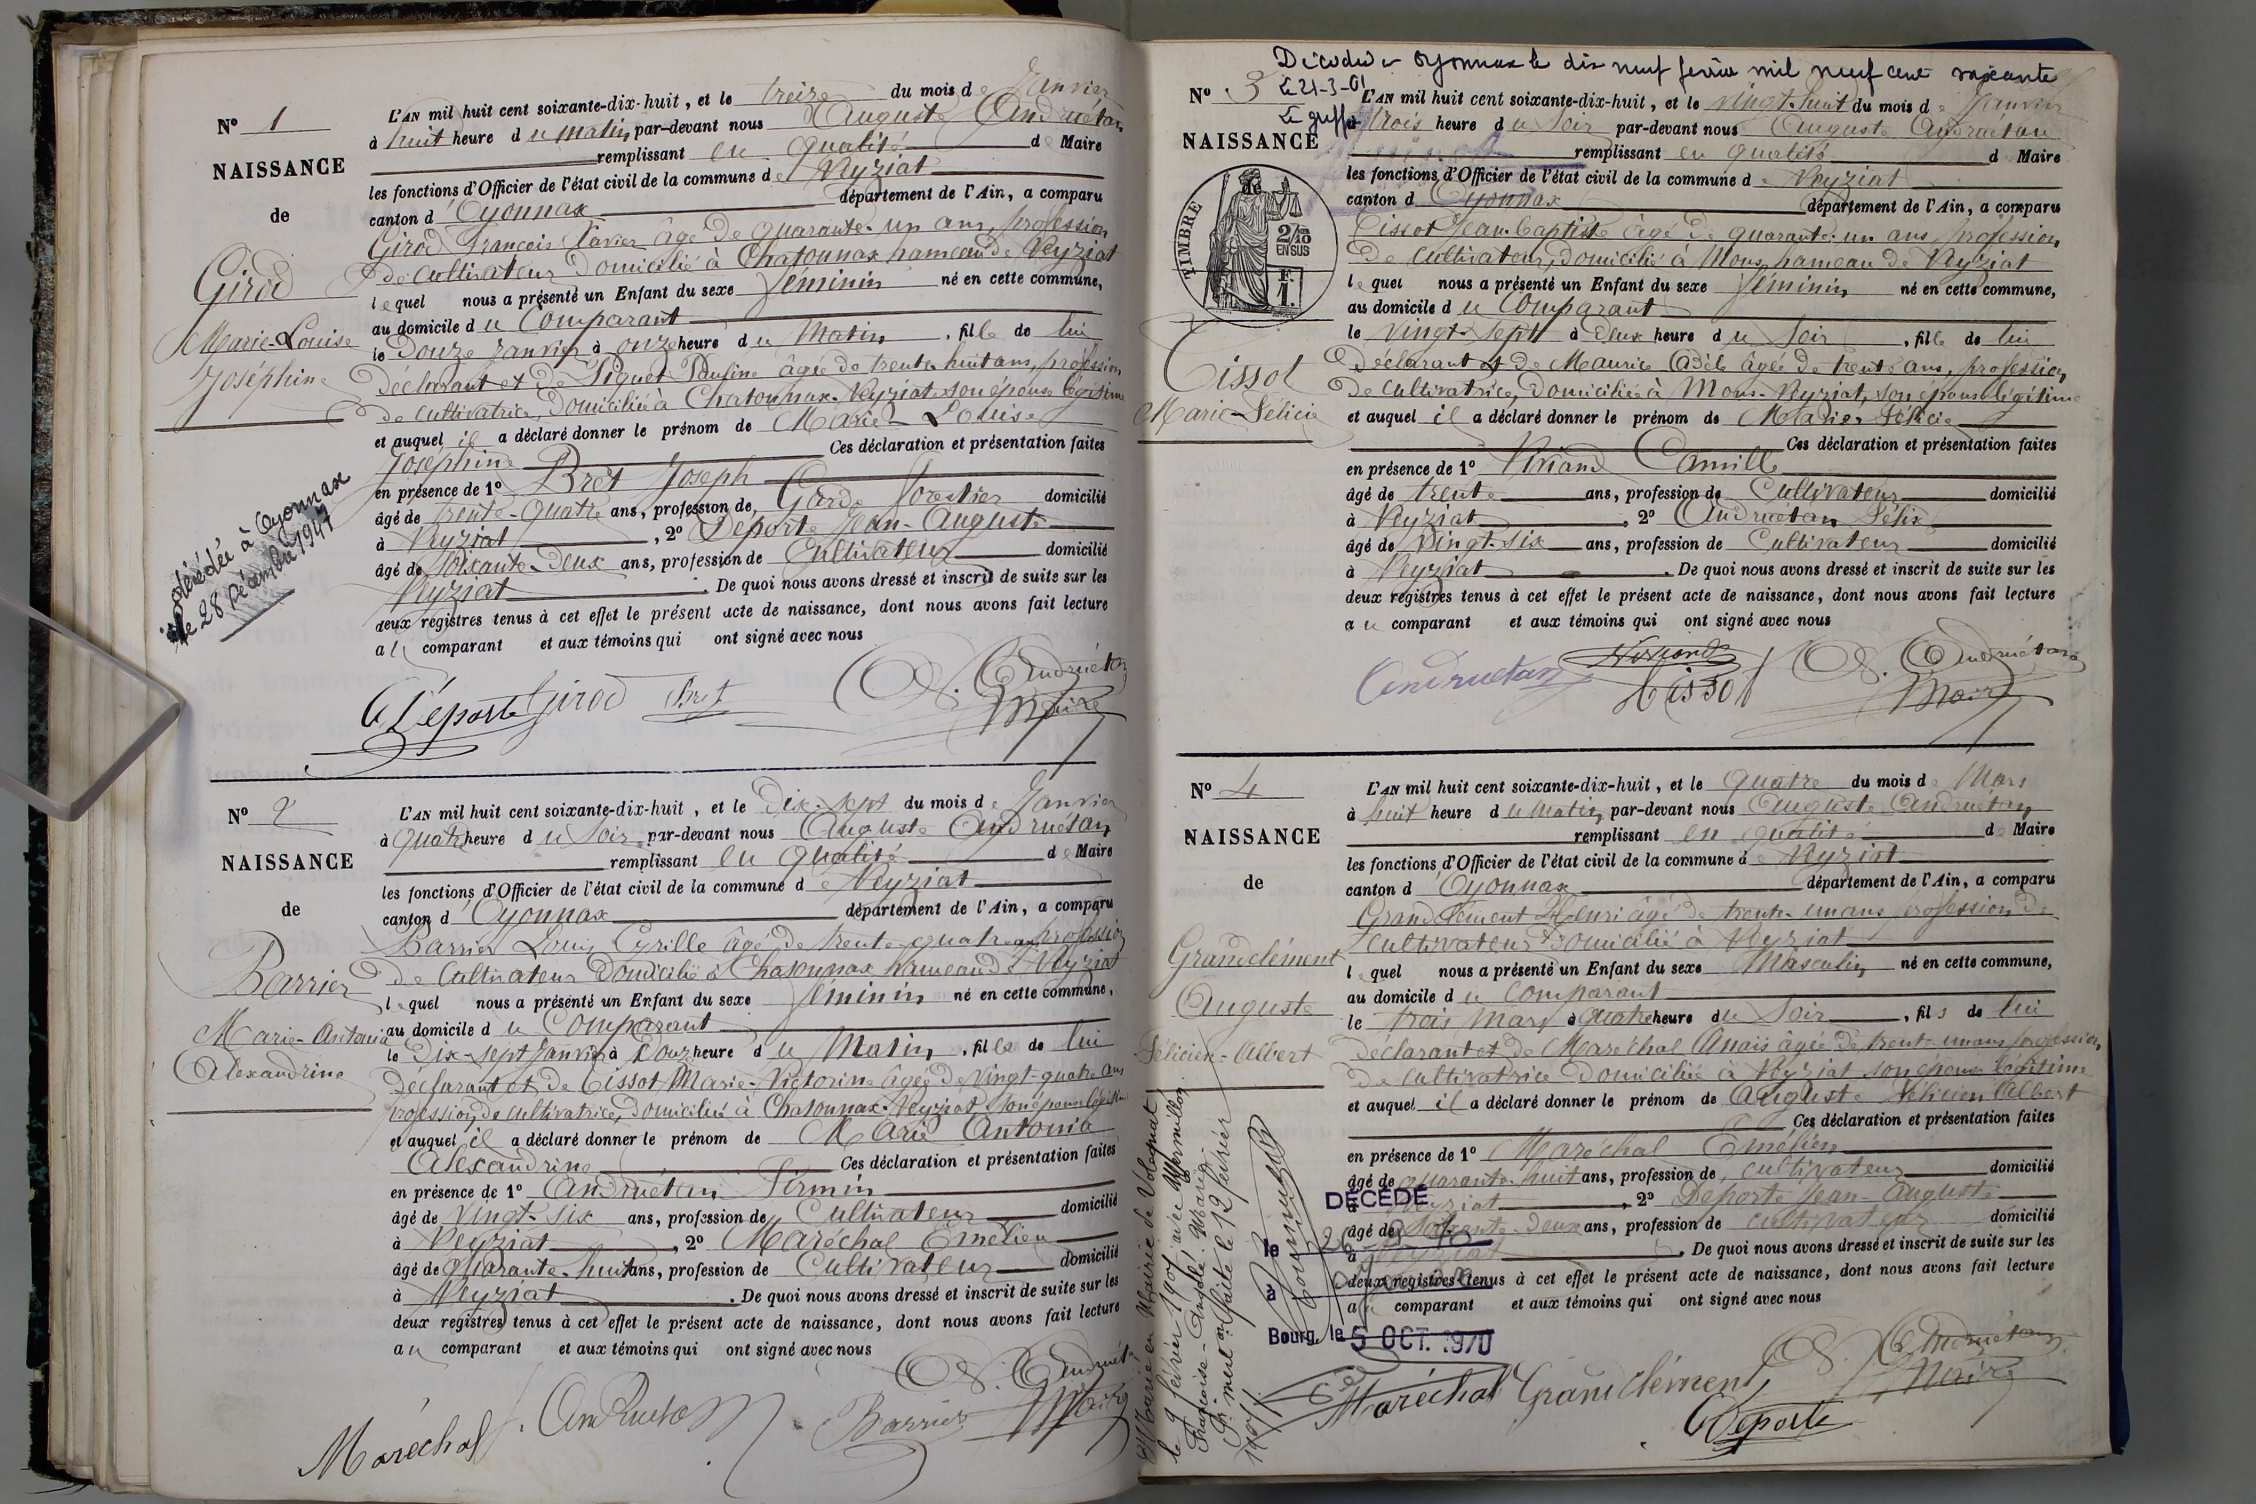 N° 1
NAISSANCE
de
Girod
Marie-Louise
Joséphine
décédée à Oyonnax
le 28 Décembre 1947
L'AN mil huit cent soixante-dix-huit, et le treize du mois de Janvier
à huit heure du matin, par-devant nous Auguste Andruétan
remplissant en qualité de Maire
les fonctions d'Officier de l'état civil de la commune de Veyziat
canton d'Oyonnax département de l'Ain, a comparu
Girod François Xavier âgé de quarante-un ans, profession
de cultivateur domicilié à Chatonnax hameau de Veyziat
lequel nous a présenté un Enfant du sexe féminin né en cette commune,
au domicile du Comparant
le Douze Janvier à onze heure du Matin, fille de lui
Déclarant et de Piquet Pauline âgée de trente huit ans, profession
de cultivatrice, domiciliée à Chatonnax-Veyziat son épouse légitime
et auquel il a déclaré donner le prénom de Marie-Louise
Joséphine Ces déclaration et présentation faites
en présence de 1° Bret Joseph
âgé de trente-quatre ans, profession de Garde forestier domicilié
à Veyziat, 2° Déporte Jean-Auguste
âgé de soixante-deux ans, profession de Cultivateur domicilié
Veyziat. De quoi nous avons dressé et inscrit de suite sur les
deux registres tenus à cet effet le présent acte de naissance, dont nous avons fait lecture
au comparant et aux témoins qui ont signé avec nous
Déporte Girod Bret A. Andruétan
Maire
N° 2
NAISSANCE
de
Barrier
Marie-Antonia
Alexandrine
L'AN mil huit cent soixante-dix-huit, et le Dix-sept du mois de Janvier
à quatre heure du Soir par-devant nous Auguste Andruétan
remplissant en qualité de Maire
les fonctions d'Officier de l'état civil de la commune de Veyziat
canton d'Oyonnax département de l'Ain, a comparu
Barrier Louis Cyrille âgé de trente-quatre ans, profession
de Cultivateur domicilié à Chatonnax hameau de Veyziat
lequel nous a présenté un Enfant du sexe féminin né en cette commune,
au domicile du Comparant
le Dix-sept Janvier à Douze heure du Matin, fille de lui
Déclarant et de Tissot Marie-Victorine âgée de vingt-quatre ans
profession, de cultivatrice, domiciliée à Chatonnax-Veyziat, son épouse légitime
et auquel il a déclaré donner le prénom de Marie Antonia
Alexandrine Ces déclaration et présentation faites
en présence de 1° Andruétan Firmin
âgé de vingt-six ans, profession de Cultivateur domicilié
à Veyziat, 2° Maréchal Emélien
âgé de quarante-huit ans, profession de Cultivateur domicilié
à Veyziat. De quoi nous avons dressé et inscrit de suite sur les
deux registres tenus à cet effet le présent acte de naissance, dont nous avons fait lecture
au comparant et aux témoins qui ont signé avec nous
Maréchal Andruétan Barrier A. Andruétan
Maire
Décédée à Oyonnax le dix neuf février mil neuf cent soixante
Le 21-3-61
Le greffier
N° 3
NAISSANCE
TIMBRE
2/10
EN SUS
F.
1.
Tissot
Marie-Félicie
L'AN mil huit cent soixante-dix-huit, et le vingt-huit du mois de Janvier
à trois heure du Soir par-devant nous Auguste Andruétan
remplissant en qualité de Maire
les fonctions d'Officier de l'état civil de la commune de Veyziat
canton d'Oyonnax département de l'Ain, a comparu
Tissot Jean-Baptiste âgé de quarante-un ans, profession
de cultivateur, domicilié à Mons, hameau de Veyziat
lequel nous a présenté un Enfant du sexe féminin né en cette commune,
au domicile du Comparant
le vingt-sept à deux heure du Soir, fille de lui
déclarant et de Maurice Adèle âgée de trente ans, profession
de cultivatrice, domiciliée à Mons-Veyziat, son épouse légitime
et auquel il a déclaré donner le prénom de Marie Félicie
Ces déclaration et présentation faites
en présence de 1° Viviand Camille
âgé de trente ans, profession de Cultivateur domicilié
à Veyziat, 2° Andruétan Félix
âgé de vingt-six ans, profession de Cultivateur domicilié
à Veyziat. De quoi nous avons dressé et inscrit de suite sur les
deux registres tenus à cet effet le présent acte de naissance, dont nous avons fait lecture
au comparant et aux témoins qui ont signé avec nous
Andruétan Viviand A. Andruétan
Tissot Maire
N° 4
NAISSANCE
de
Grandclément
Auguste
Félicien-Albert
Marié en Mairie de Volognat
le 9 février 1907 avec Mermillon
Françoise-Angèle-Maria.
Pr ment on faite le 12 février
1907.
L'AN mil huit cent soixante-dix-huit, et le quatre du mois de Mars
à huit heure du matin, par-devant nous Auguste Andruétan
remplissant en qualité de Maire
les fonctions d'Officier de l'état civil de la commune de Veyziat
canton d'Oyonnax département de l'Ain, a comparu
Grandclément Henri âgé de trente-un ans profession de
cultivateur domicilié à Veyziat
lequel nous a présenté un Enfant du sexe Masculin né en cette commune,
au domicile du comparant
le trois Mars à quatre heure du Soir, fils de lui
déclarant et de Maréchal Anaïs âgée de trente-un ans profession
de cultivatrice domiciliée à Veyziat son épouse légitime
et auquel il a déclaré donner le prénom de Auguste Félicien Albert
Ces déclaration et présentation faites
en présence de 1° Maréchal Emélien
âgé de quarante-huit ans, profession de cultivateur domicilié
à Veyziat, 2° Déporte Jean-Auguste
âgé de soixante-deux ans, profession de cultivateur domicilié
à Veyziat. De quoi nous avons dressé et inscrit de suite sur les
deux registres tenus à cet effet le présent acte de naissance, dont nous avons fait lecture
au comparant et aux témoins qui ont signé avec nous
DÉCÉDÉ
le
à
Bourg, le 5 OCT. 1970
Maréchal Grandclément A. Andruétan
Déporte Maire